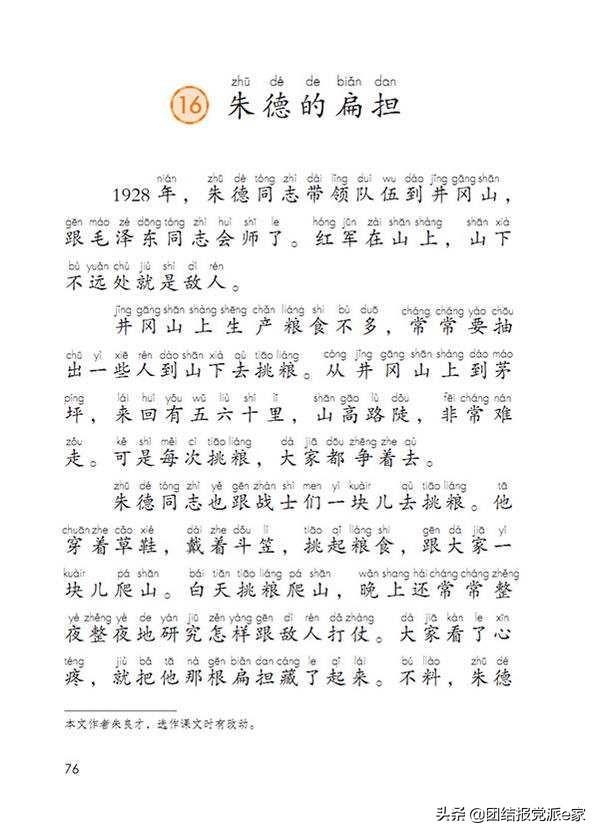 zhū dé de biǎn dan
16 朱德的扁担
nián zhū dé tóng zhì dài lǐng duì wu dào jǐng gāng shān
1928年，朱德同志带领队伍到井冈山，
gēn máo zé dōng tóng zhì huì shī le hóng jūn zài shān shàng shān xià
跟毛泽东同志会师了。红军在山上，山下
bù yuǎn chù jiù shì dí rén
不远处就是敌人。
jǐng gāng shān shàng shēng chǎn liáng shi bù duō cháng cháng yào chōu
井冈山上生产粮食不多，常常要抽
chū yì xiē rén dào shān xià qù tiāo liáng cóng jǐng gāng shān shàng dào máo
出一些人到山下去挑粮。从井冈山上到茅
píng lái huí yǒu wǔ liù shí lǐ shān gāo lù dǒu fēi cháng nán
坪，来回有五六十里，山高路陡，非常难
zǒu kě shì měi cì tiāo liáng dà jiā dōu zhēng zhe qù
走。可是每次挑粮，大家都争着去。
zhū dé tóng zhì yě gēn zhàn shì men yí kuàir qù tiāo liáng tā
朱德同志也跟战士们一块儿去挑粮。他
chuān zhe cǎo xié dài zhe dǒu lì tiāo qǐ liáng shi gēn dà jiā yí
穿着草鞋，戴着斗笠，挑起粮食，跟大家一
kuàir pá shān bái tiān tiāo liáng pá shān wǎn shang hái cháng cháng zhěng
块儿爬山。白天挑粮爬山，晚上还常常整
yè zhěng yè de yán jiū zěn yàng gēn dí rén dǎ zhàng dà jiā kàn le xīn
夜整夜地研究怎样跟敌人打仗。大家看了心
téng jiù bǎ tā nà gēn biǎn dan cáng le qǐ lái bú liào zhū dé
疼，就把他那根扁担藏了起来。不料，朱德
本文作者朱良才，选作课文时有改动。
76
头条 @团结报党派e家